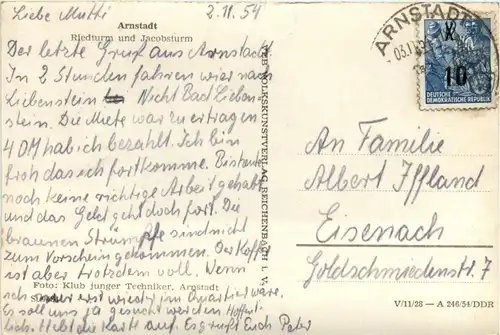 Liebe Mutti
2.11.54
Arnstadt
Riedturm und Jacobsturm
Der letzte Gruß aus Arnstadt
In 2 Stunden fahren wir nach
Liebenstein Nicht Bad Lieben
stein. Die Miete war zu ertragen
4 DM hab ich bezahlt. Ich bin
froh das ich fortkomme. Bis
noch keine richtige Arbeit gehabt
und das Geld geht doch fort. Die
braunen Strümpfe sind nicht
zum Vorschein gekommen. Der Koffer
ist aber trotzdem voll. Wenn
Foto: Klub junger Techniker, Arnstadt
ich erst wieder im Quartier wäre.
Es soll uns ja gesucht werden Hoffent
lich. Hebt die Karte auf. Es grüßt Euch Peter
VEB VOLKSKUNSTVERLAG REICHENBACH I. V.
ARNSTADT
10
DEUTSCHE
DEMOKRATISCHE REPUBLIK
An Familie
Albert Iffland
Eisenach
Goldschmiedenstr. 7
V/11/28 – A 246/54/DDR